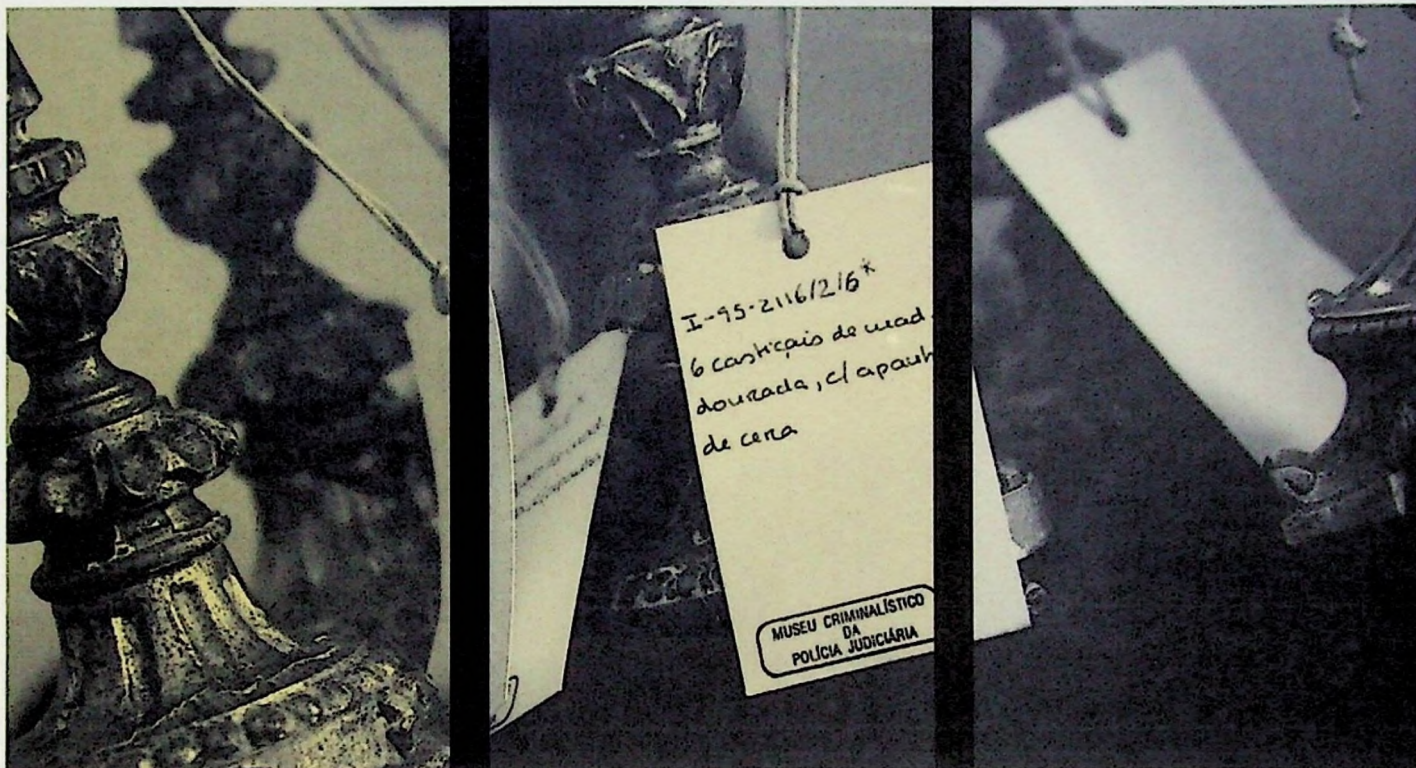 I-95-2116/2/6*
6 castiçais de mad.
dourada, c/ apanh
de cera
MUSEU CRIMINALÍSTICO
DA
POLÍCIA JUDICIÁRIA